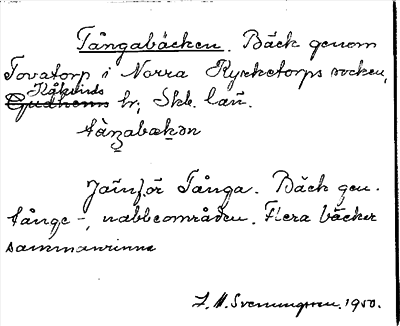 Tångabäcken. Bäck genom
Tovatorp i Norra Kyrketorps socken,
Kåkinds
Gudhems hr; Skb. län.
tàŋabækən
Jämför Tånga. Bäck gen.
tånge-, nabbeområden. Flera bäcker
sammanrinna
1950.